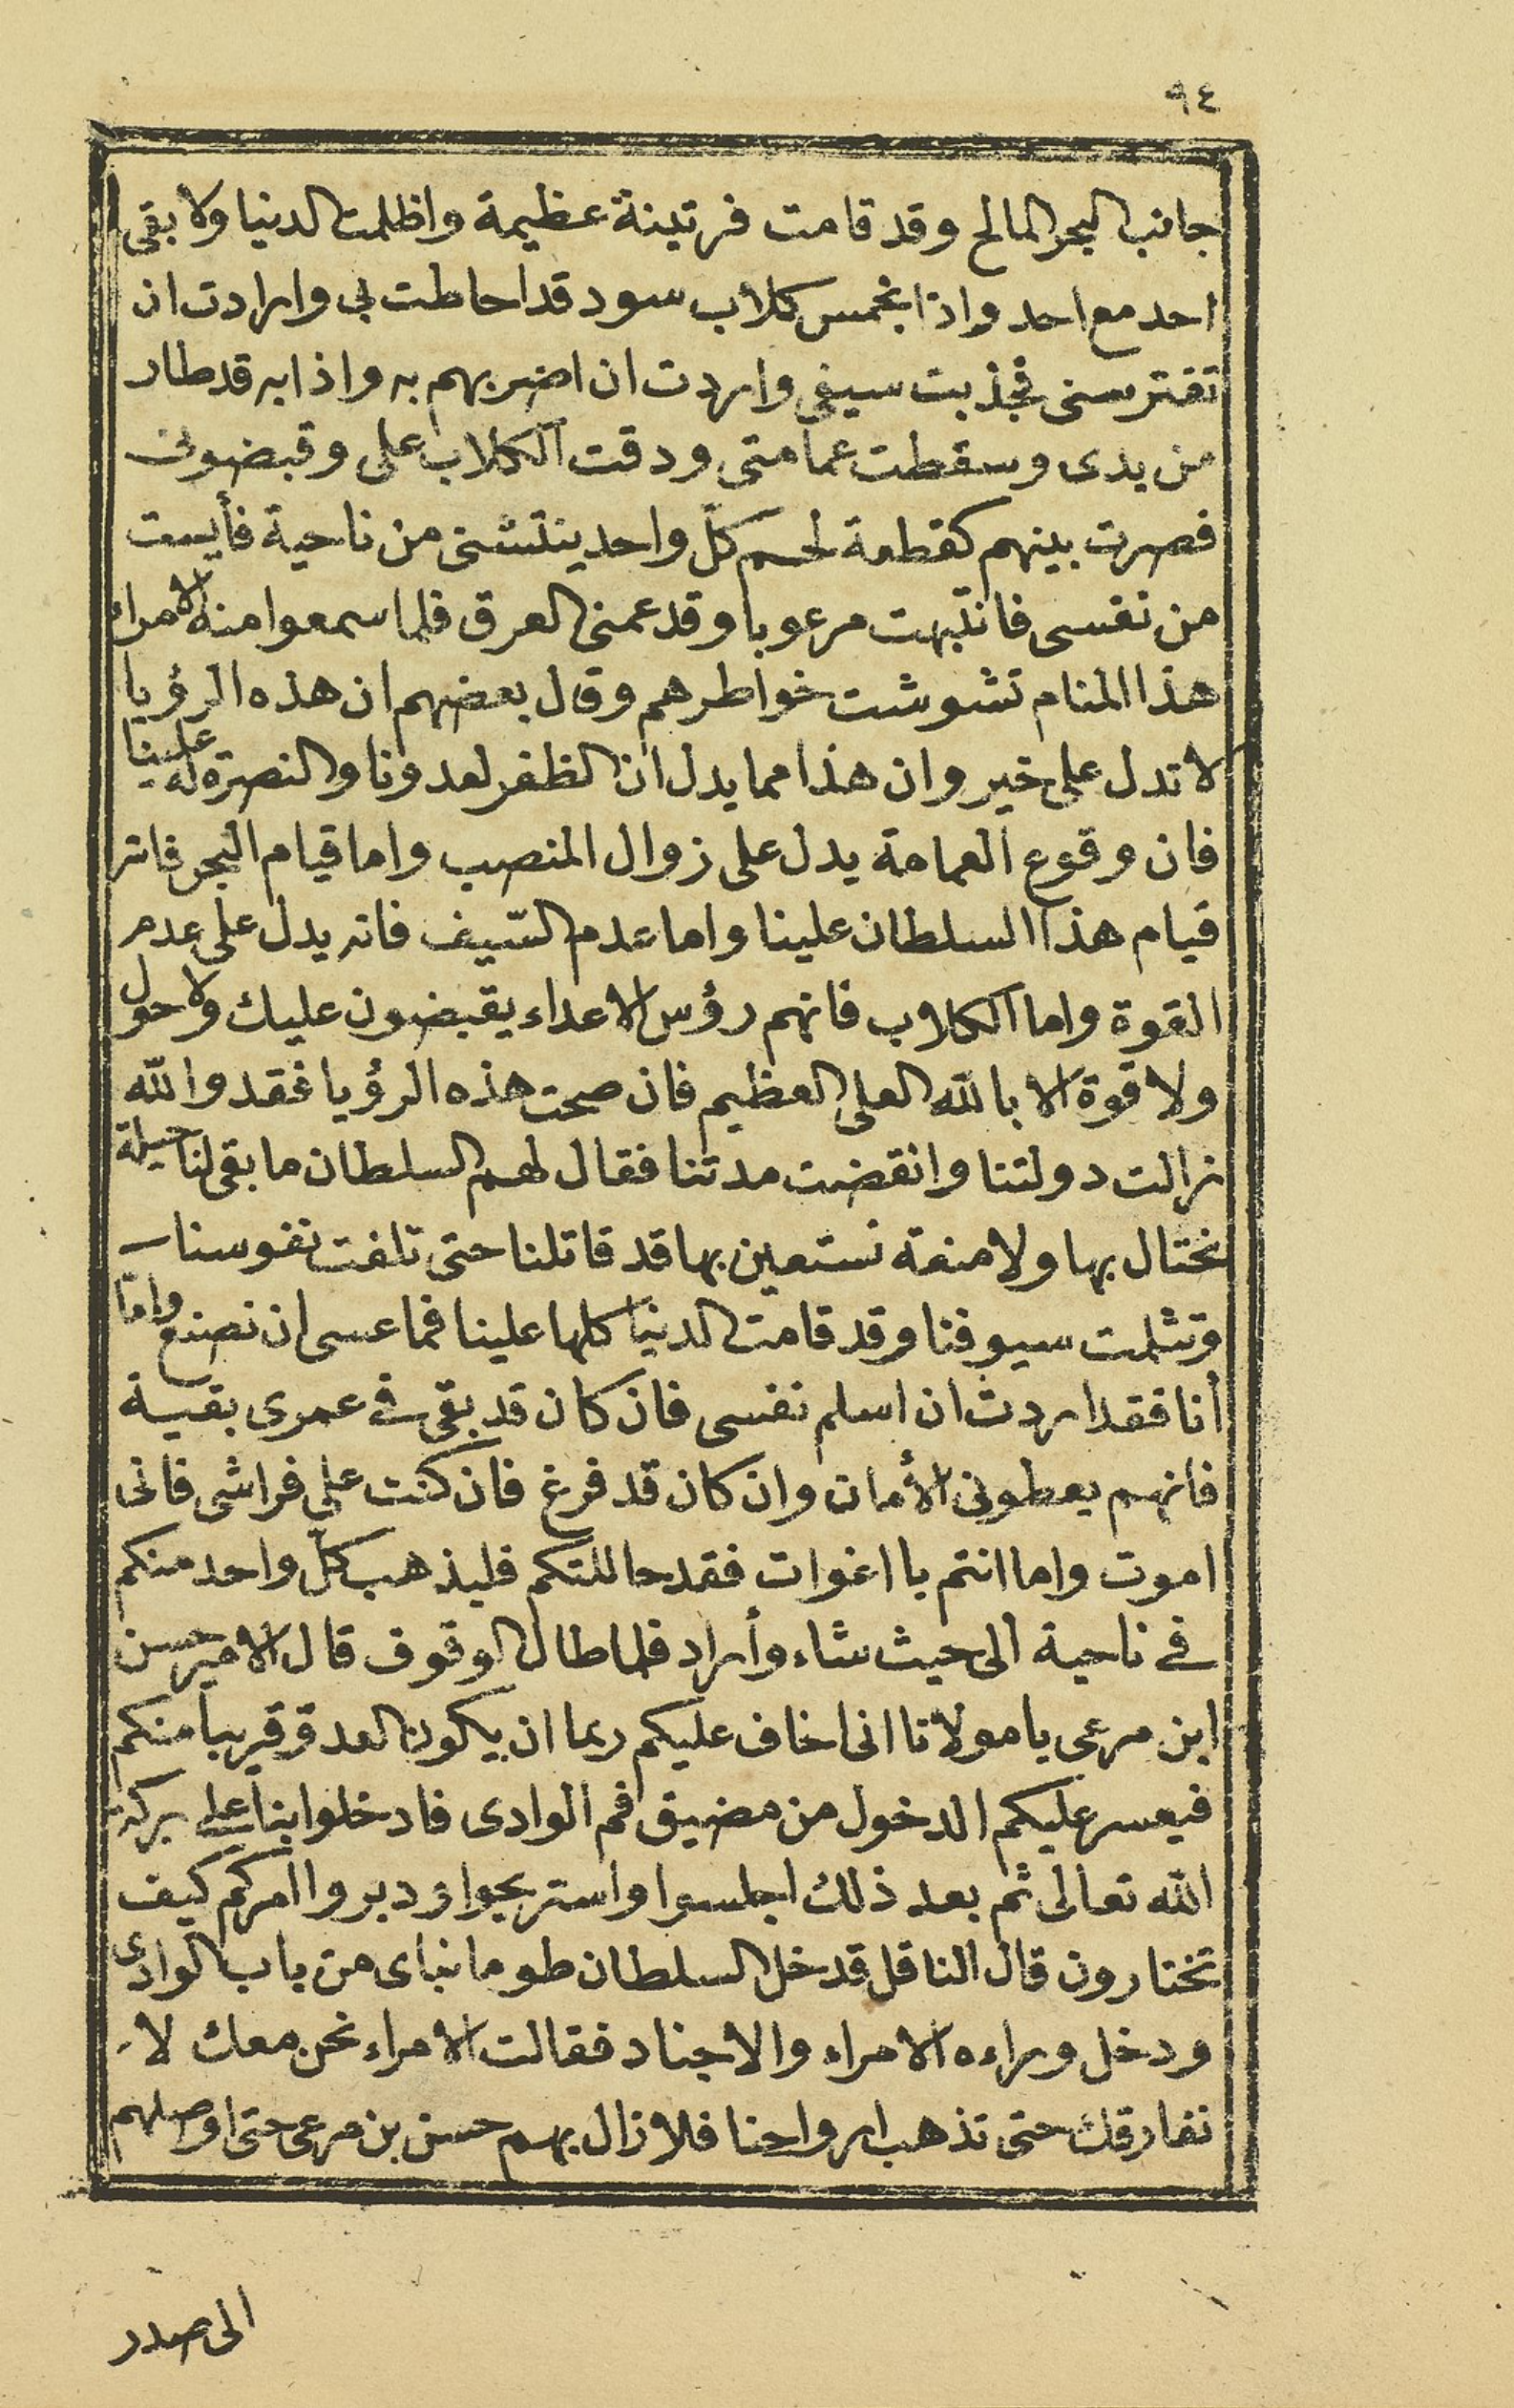 ٩٤
جانب البحر المالح وقد قامت فرتينة عظيمة واظلمت الدنيا ولا بقى
احد مع احد واذا بخمس كلاب سود قد احاطت بي وارادت ان
تفترسنى فجذبت سيفى واردت ان اضربهم به واذا به قد طار
من يدى وسقطت عمامتى ودقت الكلاب على وقبضونى
فصرت بينهم كقطعة لحم كلّ واحد ينتشنى من ناحية فأيست
من نفسى فانتبهت مرعوبا وقد عمنى العرق فلما سمعوا منه الامراء
هذا المنام تشوشت خواطرهم وقال بعضهم ان هذه الرؤيا
لا تدل على خير وان هذا مما يدل ان الظفر لعدونا والنصرة له علينا
فان وقوع العمامة يدل على زوال المنصب واما قيام البحر فانه
قيام هذا السلطان علينا واما عدم السّيف فانه يدل على عدم
القوة واما الكلاب فانهم رؤس الاعداء يقبضون عليك ولا حول
ولا قوة الا بالله العلى العظيم فان صحت هذه الرؤيا فقد والله
زالت دولتنا وانقضت مدتنا فقال لهم السلطان ما بقى لنا حيلة
نحتال بها ولا منعة نستعين بها قد قاتلنا حتى تلفت نفوسنا
وتثلمت سيوفنا وقد قامت الدنيا كلها علينا فما عسى ان نصنع وامّا
أنا فقد اردت ان اسلم نفسى فان كان قد بقى فى عمرى بقية
فانهم يعطونى الأمان وان كان قد فرغ فان كنت على فراشى فانى
اموت واما انتم يا اغوات فقد حاللتكم فليذهب كلّ واحد منكم
فى ناحية الى حيث شاء وأراد فلما طال الوقوف قال الامير حسن
ابن مرعى يا مولانا انى اخاف عليكم ربما ان يكون العدوّ قريبا منكم
فيعسر عليكم الدخول من مضيق فم الوادى فادخلوا بنا على بركة
الله تعالى ثم بعد ذلك اجلسوا واستريحوا ودبروا امركم كيف
تختارون قال الناقل قدخل السلطان طومانباى من باب الوادى
ودخل وراءه الامراء والاجناد فقالت الامراء نحن معك لا
نفارقك حتى تذهب ارواحنا فلا زال بهم حسن بن مرعى حتى اوصلهم
الى صدر